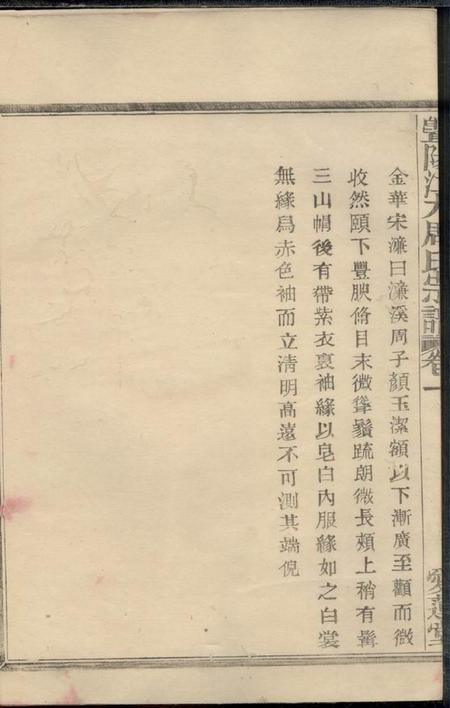 周氏宗譜卷一
愛蓮堂
金華宋濂曰濂溪周子顏玉潔額以下漸廣至顴而微
收然頤下豐腴脩目末微聳鬚疏朗微長頰上稍有髯
三山帽後有帶紫衣裏袖緣以皂白內服緣如之白裳
無緣舄赤色袖而立清明高遠不可測其端倪